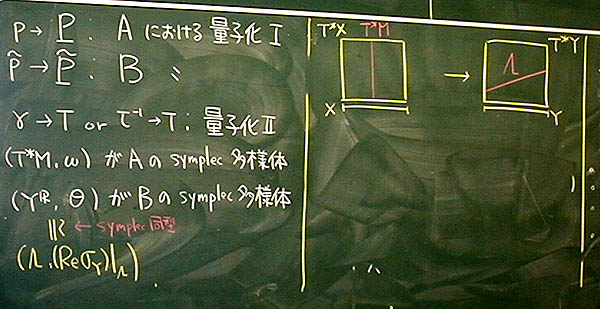 p → P : A における 量子化 I
p̃ → P̃ : B 〃
γ → T or τ⁻¹ → T : 量子化 II
(T*M, ω) が A の symplec 多様体
(Yᴿ, Θ) が B の symplec 多様体
||? ← symplec 同型
(Λ, (Re σ_Y)|_Λ)
T*X T*M
X
→
T*Y
Λ
Y